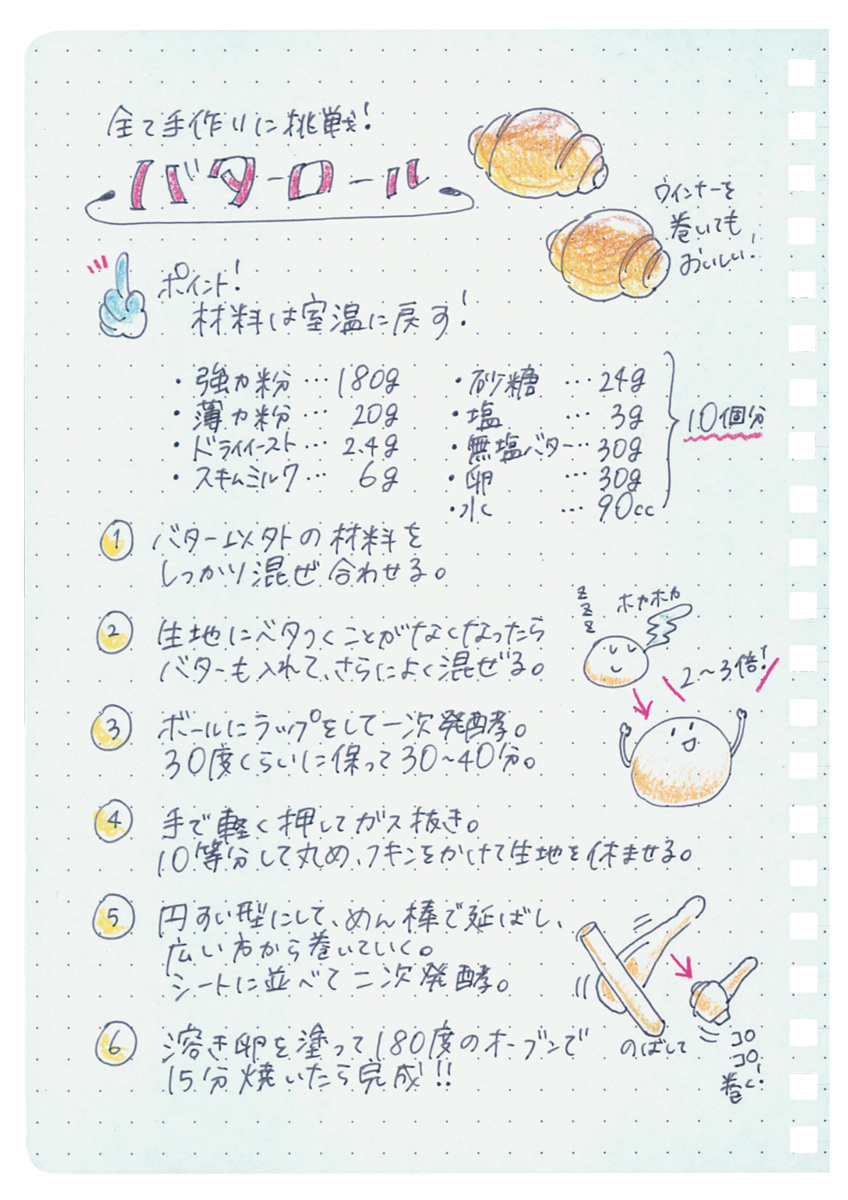 全て手作りに挑戦!
バターロール
ウインナーを
巻いても
おいしい!
ポイント!
材料は室温に戻す!
・強力粉…180g
・薄力粉…20g
・ドライイースト…2.4g
・スキムミルク…6g
・砂糖…24g
・塩…3g
・無塩バター…30g
・卵…30g
・水…90cc
10個分
① バター以外の材料を
しっかり混ぜ合わせる。
② 生地にベタつくことがなくなったら
バターも入れて、さらによく混ぜる。
zzz
ホカホカ
2~3倍!
③ ボールにラップをして一次発酵。
30度くらいに保って30~40分。
④ 手で軽く押してガス抜き。
10等分して丸め、フキンをかけて生地を休ませる。
⑤ 円すい型にして、めん棒で延ばし、
広い方から巻いていく。
シートに並べて二次発酵。
のばして
コロ
コロ
巻く!
⑥ 溶き卵を塗って180度のオーブンで
15分焼いたら完成!!